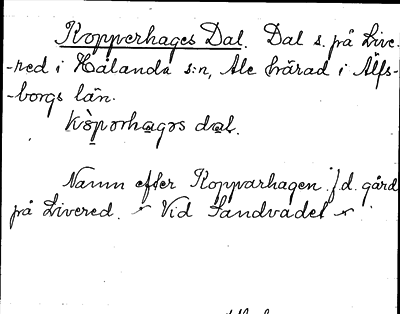 Kopperhages Dal. Dal s. på Live-
-red i Hålanda s:n, Ale härad i Älfs-
-borgs län.
Kòpərhagəs dal.
Namn efter Kopparhagen f.d. gård
på Livered. Vid Sandvadet